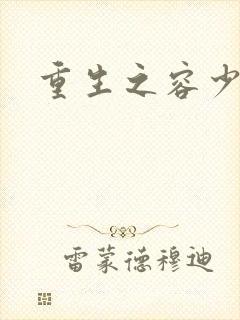 重生之容少
雷蒙德穆迪